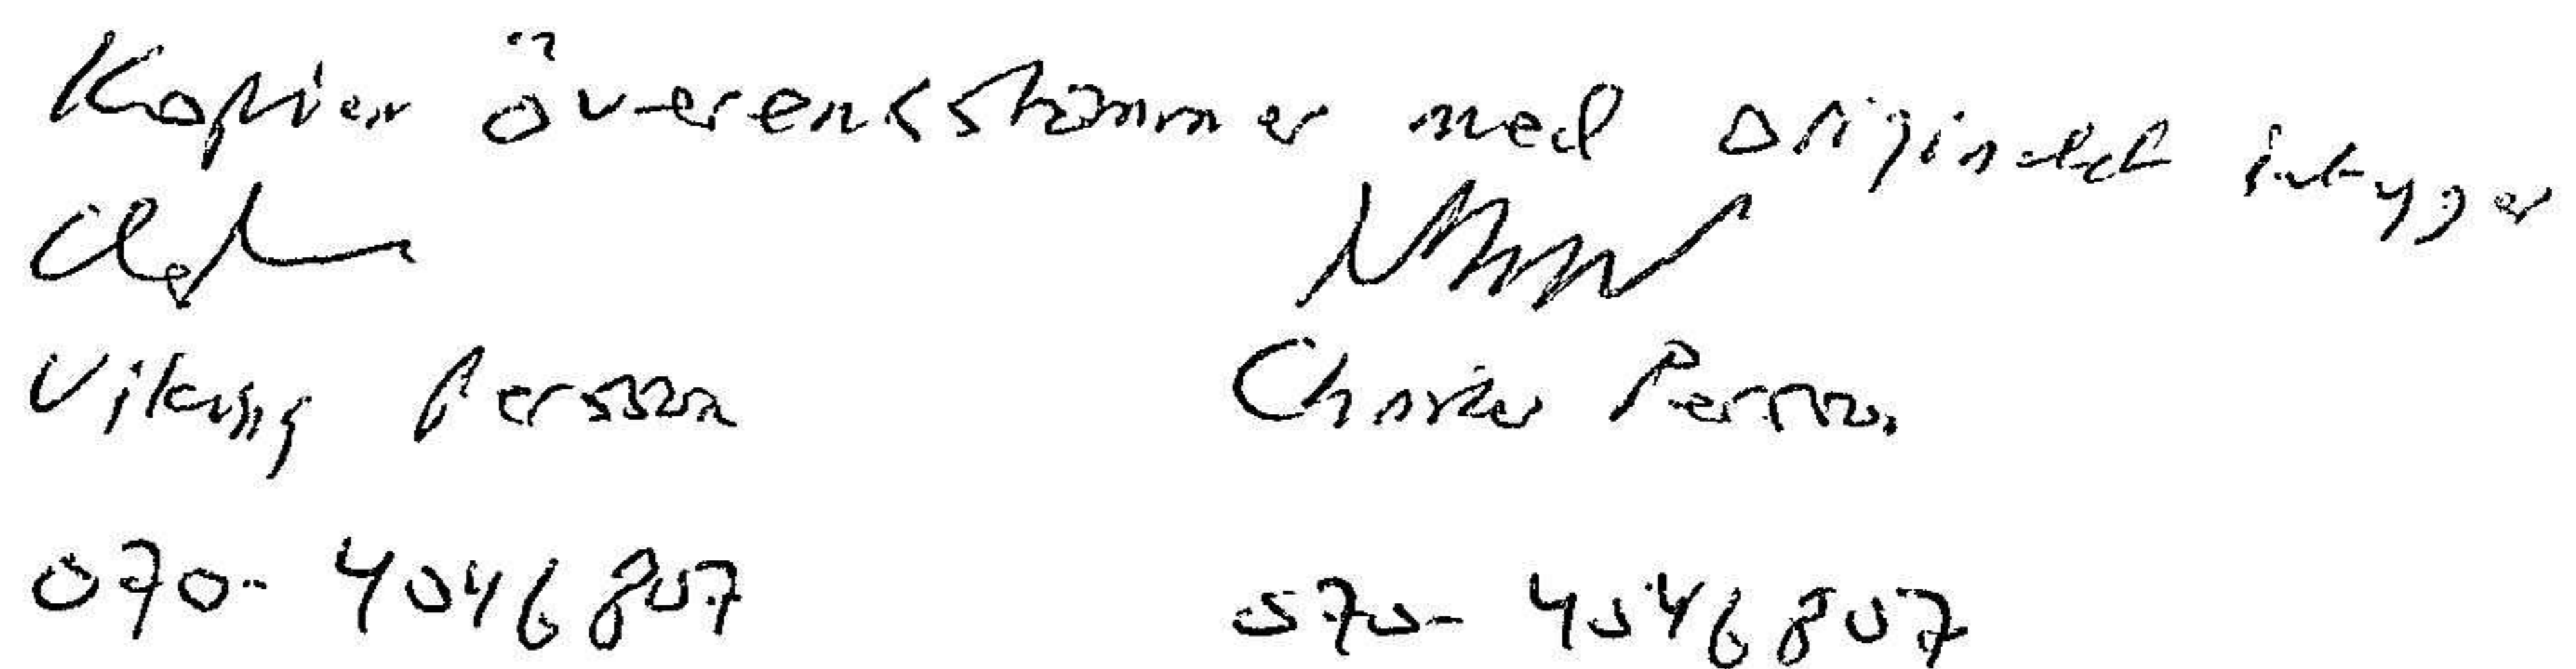 Kopian överensstämmer med originalet intygar
Viking Persson Christer Persson
070-4046807 070-4046807